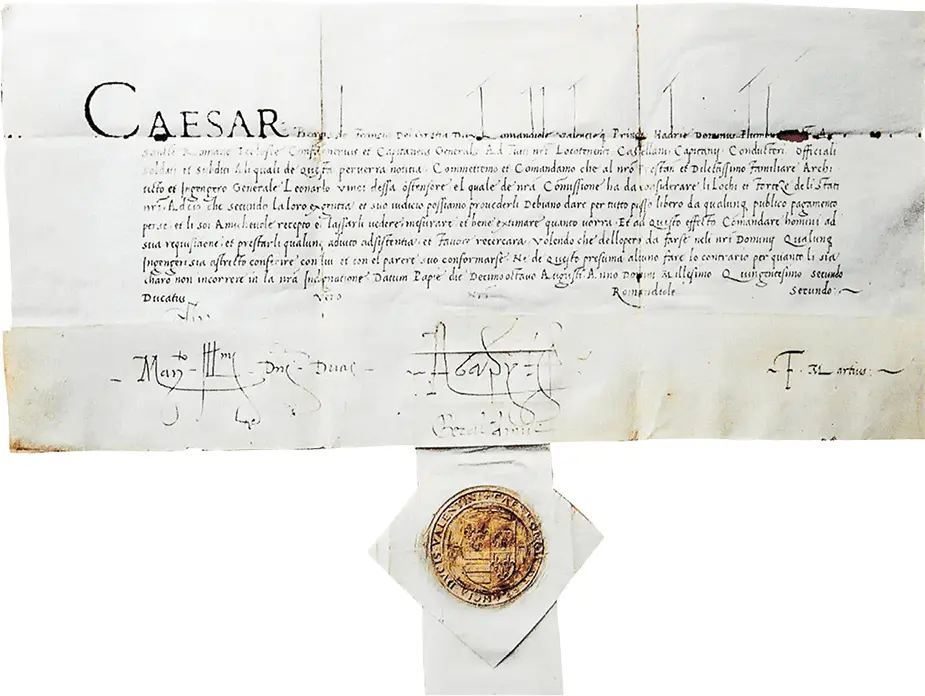 CAESAR Borgia de Francia Dei Gratia Dux Romandiole Valencieq Princeps Hadrie Dominus Plumb
Sancte Romane Ecclesie Confalonerius et Capitaneus Generalis Ad Tuti nri Locotenenti Castellani Capitany Conductori Officiali
Soldati et Subditi A li quali de questa perverra notitia Commettemo et Comandamo che al nro prestan et Dilectissimo Familiare Archi
tecto et Ingegnero Generale Leonardo vinci dessa ostensore el quale de nra Comissione ha da considerare li Lochi et forteze de li Stati
nri Ad cio che secundo la loro exigentia et suo iudicio possiamo provederli Debiano dare per tutto passo libero da qualunq publico pagamento
per se et li soi Amichevole recepto et lassarli vedere mesurare et bene extimare quanto vorra Et ad questo effecto Comandare homini ad
sua requisitione et prestarli qualunq adiuto adsistentia et favore recercara volendo che dellopere da farse neli nri Dominij Qualunq
Ingegneri sia astrecto conferire con lui et con el parere suo conformarse Ne de questo presuma alcuno fare lo contrario per quanto li sia
charo non incorrere in la nra Indignatione Datum Papie die Decimo octavo Augusti Anno Domini Millesimo Quingentesimo secundo
Ducatus Vero Nri Romandiole Secundo:~
F. Martius:~
DVCIS VALENTINI